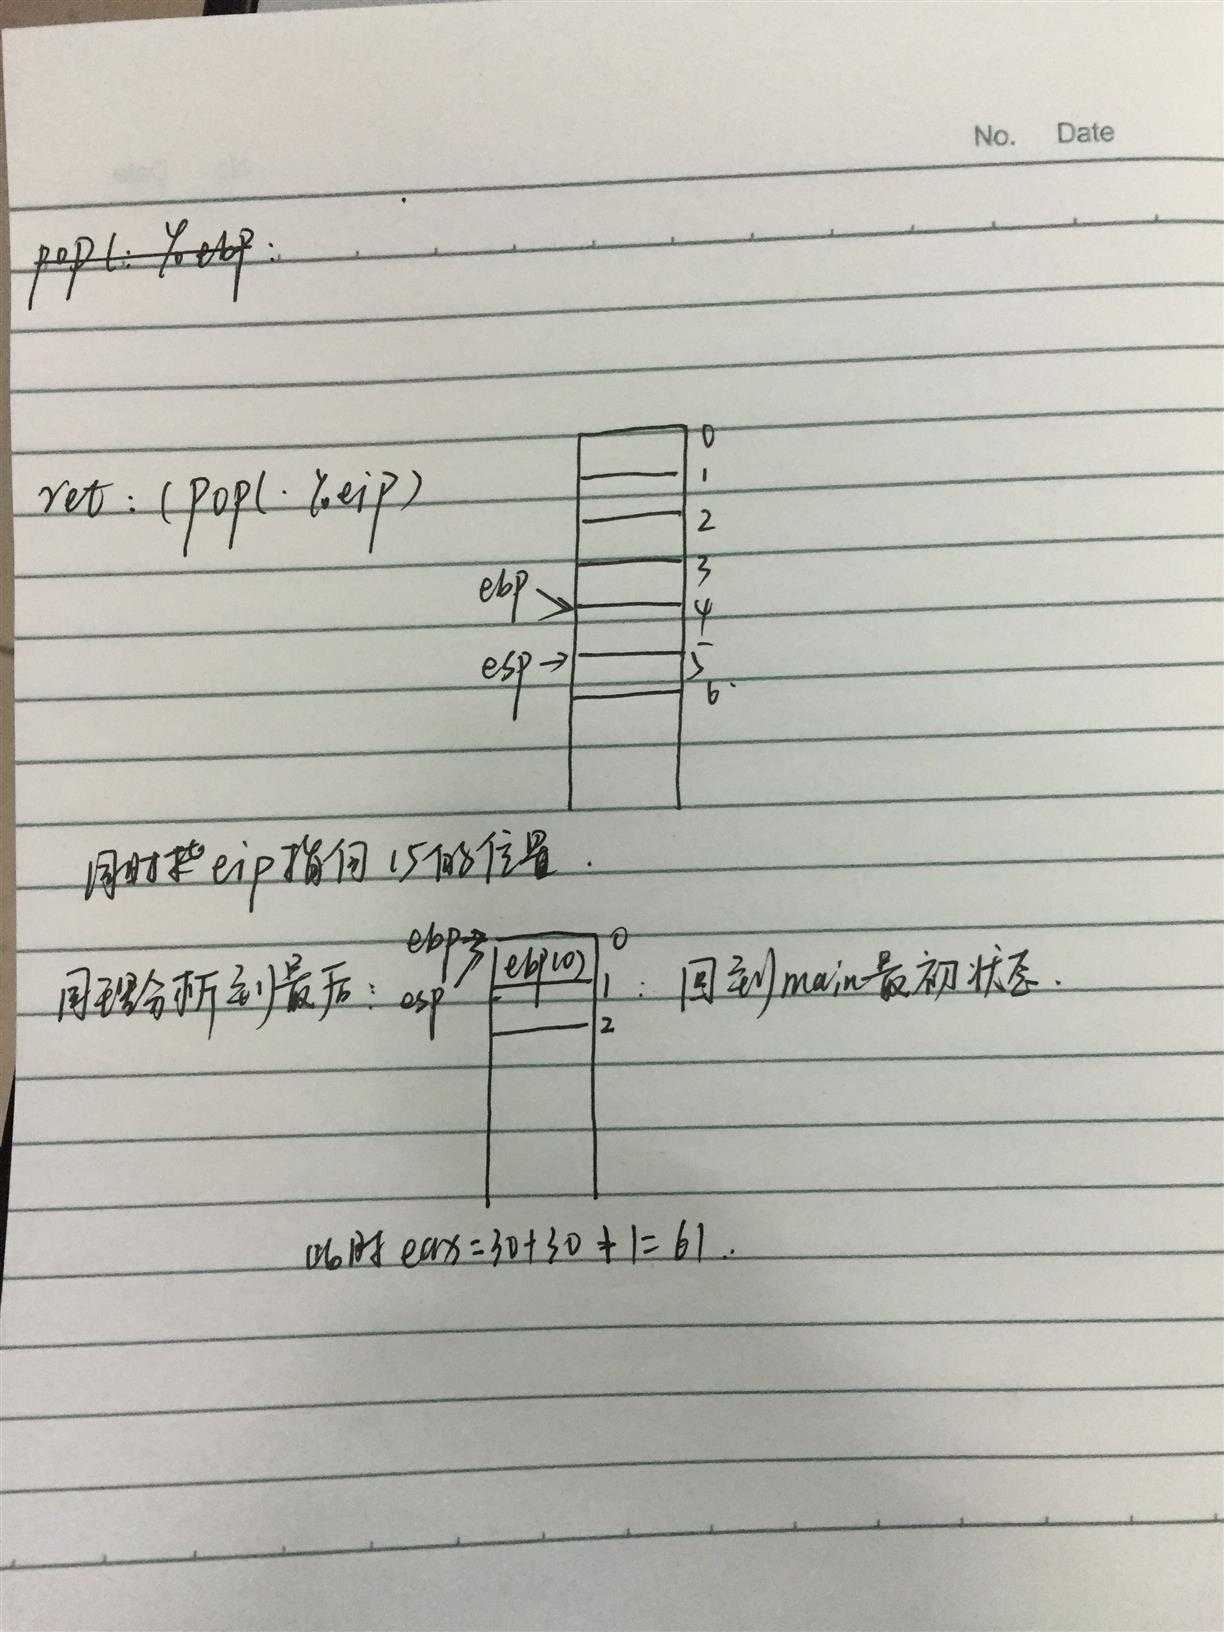 No. Date
popl: %ebp:
ret: (popl. %eip)
0
1
2
3
ebp 4
esp 5
6
同时把eip指向15的位置.
ebp 0
同理分析到最后: esp ebp(0) 1 : 回到main最初状态.
2
此时eax=30+30+1=61.